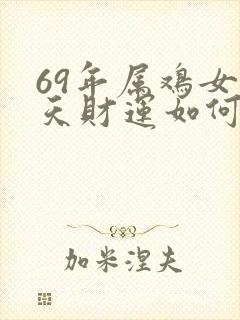 69年属鸡女
天财运如何
加米涅夫